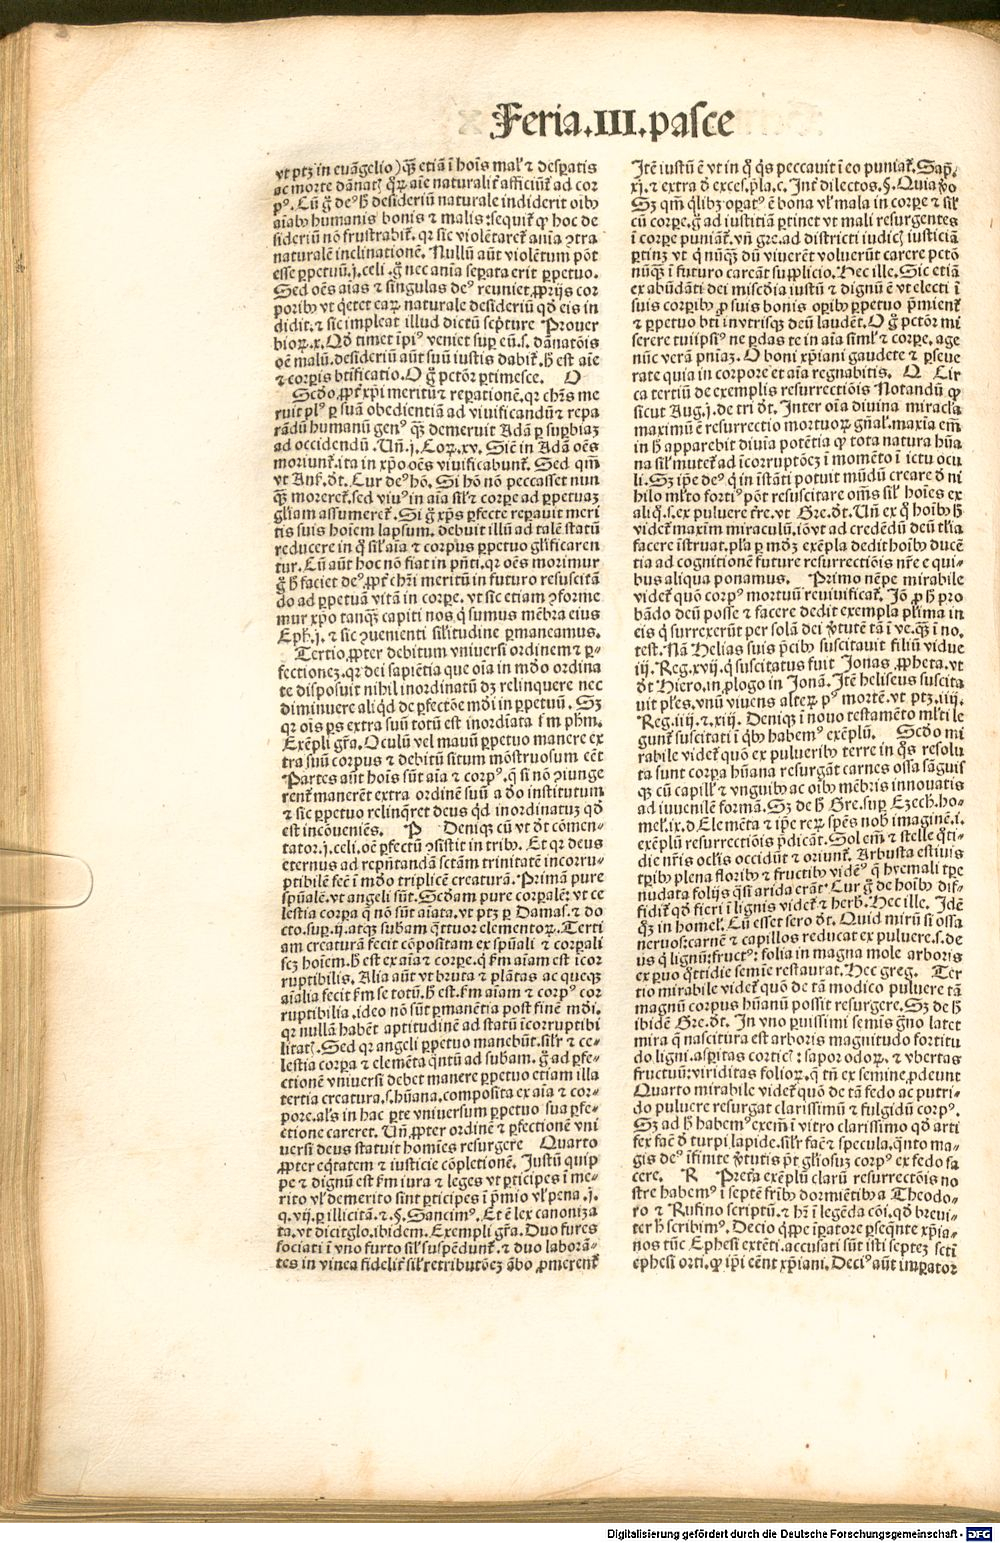 Feria.III.pasce
vt ptꝫ in euãgelio) q̃ꝫ etiã ĩ hoĩs mał ⁊ despatis
ac morte dãnatꝭ q̃ꝝ aĩe naturalit̃ afficiũt̃ ad cor
pꝰ. Cũ g̃ deꝰ h̃ desideriũ naturale indiderit oĩbꝰ
aĩabꝰ humanis bonis ⁊ malis: sequit̃ ꝙ hoc de
sideriũ nõ frustrabit̃. qr sic violẽtaret̃ anĩa ꝯtra
naturalẽ inclinationẽ. Nullũ aũt violẽtum põt
esse ꝑpetuũ. j. celi. g̃ nec anĩa seꝑata erit ꝑpetuo.
Sed oẽs aĩas ⁊ singulas deꝰ reuniet ꝓprijs cor
poribꝰ vt q̃etet eaꝝ naturale desideriũ qđ eis in
didit. ⁊ sic impleat illud dictũ sc̃pture Prouer
bioꝝ. x. Qđ timet ĩpiꝰ veniet suꝑ eũ. s. dãnatõis
oẽ malũ. desideriũ aũt suũ iustis dabit̃. h̃ est aĩe
⁊ corꝑis bt̃ificatio. O g̃ pctõr ꝑtimesce. O
Scđo ꝓpt̃ xp̃i meritũ ⁊ reꝑationẽ. qr chr̃s me
ruit plꝰ ꝑ suã obedientiã ad viuificandũ ⁊ repa
rãdũ humanũ genꝰ q̃ꝫ demeruit Adã ꝑ suꝑbiaꝫ
ad occidendũ. Uñ. j. Coꝝ. xv. Sic̃ in Adã oẽs
moriunt̃. ita in xp̃o oẽs viuificabunt̃. Sed qm̃
vt Anß. đt. Cur deꝰ hõ. Si hõ nõ peccasset nun
q̃ꝫ moreret̃. sed viuꝰ in aĩa sil̃ ⁊ corpe ad ꝑpetuaꝫ
gl̃iam assumeret̃. Si g̃ xp̃s ꝑfecte reꝑauit meri
tis suis hoĩem lapsum. debuit illũ ad talẽ statũ
reducere in q̃ sil̃ aĩa ⁊ corpus ꝑpetuo gl̃ificaren
tur. Cũ aũt hoc nõ fiat in pñti. qr oẽs morimur
g̃ h̃ faciet deꝰ. ꝓpt̃ chr̃i meritũ in futuro resuscitã
do ad ꝑpetuã vitã in corꝑe. vt sic etiam ꝯforme
mur xp̃o tanq̃ꝫ capiti nos q̃ sumus mẽbra eius
Eph̃. j. ⁊ sic ꝯuenienti sil̃itudine ꝑmaneamus.
Tertio ꝓpter debitum vniuersi ordinem ⁊ ꝑ-
fectioneꝫ. qr dei sapiẽtia que oĩa in mđo ordina
te disposuit nihil inordinatũ dꝫ relinquere nec
diminuere aliq̃d de ꝑfectõe mđi in ꝑpetuũ. Sꝫ
qr oĩs ꝑs extra suũ totũ est inordĩata ẜm ph̃m.
Exẽpli gr̃a. Oculũ vel manũ ꝑpetuo manere ex
tra suũ corpus ⁊ debitũ situm mõstruosum eẽt
Partes aũt hoĩs sũt aĩa ⁊ corpꝰ. q̃ si nõ ꝯiunge
rent̃ manerẽt extra ordinẽ suũ a đo institutum
⁊ sic ꝑpetuo relinq̃ret deus q̃d inordinatuꝫ qđ
est incõueniẽs. P Deniqꝫ cũ vt đt cõmen-
tator. j. celi. oẽ ꝑfectũ ꝯsistit in tribꝰ. Et qr deus
eternus ad repñtandã sctãm trinitatẽ incorru-
ptibilẽ fec̃ ĩ mđo triplicẽ creaturã. Primã pure
sp̃ualẽ. vt angeli sũt. Scđam pure corꝑalẽ: vt ce
lestia corꝑa q̃ nõ sũt aĩata. vt ptꝫ ꝑ Damaß. ⁊ do
cto. suꝑ. ij. atqꝫ subam q̃ttuor elementoꝝ. Terti
am creaturã fecit cõpositam ex sp̃uali ⁊ corꝑali
scꝫ hoĩem. h̃ est ex aĩa ⁊ corpe. q̃ ẜm aĩam est ĩcor
ruptibilis. Alia aũt vt bruta ⁊ plãtas ac queqꝫ
aĩalia fecit ẜm se totũ. h̃ est. ẜm aĩam ⁊ corpꝰ cor
ruptibilia. ideo nõ sũt ꝑmanẽtia post finẽ mđi.
qr nullã habẽt aptitudinẽ ad statũ ĩcorruptibi
litatꝭ. Sed qr angeli ꝑpetuo manebũt. sil̃r ⁊ ce-
lestia corꝑa ⁊ elemẽta q̃ntũ ad subam. g̃ ad ꝑfe-
ctionẽ vniuersi debet manere ꝑpetuo etiam illa
tertia creatura. s. hũana. composita ex aĩa ⁊ cor-
pore. al̃s in hac ꝑte vniuersum ꝑpetuo sua ꝑfe-
ctione careret. Uñ ꝓpter ordinẽ ⁊ ꝑfectionẽ vni
uersi deus statuit homĩes resurgere Quarto
ꝓpter eq̃tatem ⁊ iusticie cõpletionẽ. Justũ quip
pe ⁊ dignũ est ẜm iura ⁊ leges vt ꝑticipes ĩ me-
rito vl̃ demerito sint ꝑticipes ĩ p̃mio vl̃ pena. j.
q. vij. ꝑ illicitã. ⁊. §. Sancimꝰ. Et ẽ lex canoniza
ta. vt dicit glo. ibidem. Exempli gr̃a. Duo fures
sociati ĩ vno furto sil̃ suspẽdunt̃. ⁊ duo laborã-
tes in vinea fidelit̃ sil̃ retributõeꝫ ãbo ꝓmerent̃
Jtẽ iustũ ẽ vt in q̃ q̃s peccauit ĩ eo puniat̃. Sap̃.
xj. ⁊ extra đ exceß. p̃la. c. Jnt̃ dilectos. §. Quia ṽo
Sꝫ qm̃ q̃libꝫ oꝑatꝰ ẽ bona vl̃ mala in corꝑe ⁊ sil̃
cũ corꝑe. g̃ ad iustitiã ꝑtinet vt mali resurgentes
ĩ corꝑe puniãt̃. vñ gre. ad districti iudicꝭ iusticiã
ꝑtinꝫ vt q̃ nũq̃ꝫ dũ viuerẽt voluerũt carere pctõ
nũq̃ꝫ ĩ futuro careãt supplicio. Hec ille. Sic etiã
ex abũdãti dei misc̃dia iustũ ⁊ dignũ ẽ vt electi ĩ
suis corꝑibꝰ ꝓ suis bonis oꝑibꝰ ꝑpetuo p̃mient̃
⁊ ꝑpetuo bt̃i in vtrisqꝫ deũ laudẽt. O g̃ pctõr mi
serere tui ipsiꝰ ne ꝑdas te in aĩa siml̃ ⁊ corꝑe. age
nũc verã pnĩaꝫ. O boni xp̃iani gaudete ⁊ ꝑseue
rate quia in corpore et aĩa regnabitis. Q Cir
ca tertiũ de exemplis resurrectiõis Notandũ ꝙ
sicut Aug. j. de tri đt. Jnter oĩa diuina miracl̃a
maximũ ẽ resurrectio mortuoꝝ gñal̃. maxĩa em̃
in h̃ apparebit diuĩa potẽtia ꝙ tota natura hũa
na sil̃ mutet̃ ad ĩcorruptõeꝫ ĩ momẽto ĩ ictu ocu
li. Sꝫ ip̃e deꝰ q̃ in ĩstãti potuit mũdũ creare đ ni
hilo ml̃to fortiꝰ põt resuscitare om̃s sil̃ hoĩes ex
aliq̃. s. ex puluere t̃re. vt Gre. đt. Uñ ex q̃ hoĩbꝰ h̃
videt̃ maxim miraculũ. iõ vt ad credẽdũ deũ tl̃ia
facere ĩstruat. pl̃a ꝑ mđꝫ exẽpla dedit hoĩbꝰ ducẽ
tia ad cognitionẽ future resurrectiõis nr̃e e qui-
bus aliqua ponamus. Primo nẽpe mirabile
videt̃ quõ corpꝰ mortuũ reuiuificat̃. Jõ ꝓ h̃ pro
bãdo deũ posse ⁊ facere dedit exempla pl̃ima in
eis q̃ surrexerũt per solã dei v̾tutẽ tã ĩ ve. q̃ꝫ ĩ no.
test. Nã Helias suis p̃cibꝰ suscitauit filiũ vidue
iij. Reg. xvij. q̃ suscitatus fuit Jonas ꝓpheta. vt
đt Hiero. in ꝓlogo in Jonã. Jtẽ heliseus suscita
uit pl̃es. vnũ viuens alteꝝ pꝰ mortẽ. vt ptꝫ. iiij.
Reg. iiij. ⁊. xiij. Deniqꝫ ĩ nouo testamẽto ml̃ti le
gunt̃ suscitati ĩ q̃bꝰ habemꝰ exẽplũ. Scđo mi
rabile videt̃ quõ ex pulueribꝰ terre in q̃s resolu
ta sunt corꝑa hũana resurgãt carnes ossa sãguis
q̃ꝫ cũ capill̃ ⁊ vnguibꝰ ac oĩbꝰ mẽbris innouatis
ad iuuenilẽ formã. Sꝫ de h̃ Gre. suꝑ Ezech̃. ho-
mel̃. ix. d Elemẽta ⁊ ip̃e reꝝ sp̃es nob̃ imaginẽ. i.
exẽplũ resurrectiõis p̃dicãt. Sol em̃ ⁊ stelle q̃ti-
die nr̃is ocl̃is occidũt ⁊ oriunt̃. Arbusta estiuis
tꝑibꝰ plena floribꝰ ⁊ fructibꝰ vidẽt̃ q̃ hyemali tꝑe
nudata folijs q̃si arida erãt. Cur g̃ de hoĩbꝰ dif-
fidit̃ qđ fieri ĩ lignis videt̃ ⁊ herb̃. Hec ille. Jdẽ
q̃ꝫ in homel̃. Cũ esset sero đt. Quid mirũ si ossa
neruos: carnẽ ⁊ capillos reducat ex puluere. s. de
us q̃ lignũ: fructꝰ: folia in magna mole arboris
ex ꝑuo q̃ttidie semĩe restaurat. Hec greg. Ter
tio mirabile videt̃ quõ de tã modico puluere tã
magnũ corpus hũanũ possit resurgere. Sꝫ de h̃
ibidẽ Gre. đt. Jn vno ꝑuissimi semĩs g̃no latet
mira q̃ nascitura est arboris magnitudo fortitu
do ligni. asꝑitas corticꝭ: sapor odoꝝ. ⁊ vbertas
fructuũ: viriditas folioꝝ. q̃ tñ ex semine ꝓdeunt
Quarto mirabile videt̃ quõ de tã fedo ac putri-
do puluere resurgat clarissimũ ⁊ fulgidũ corpꝰ.
Sꝫ ad h̃ habemꝰ exem̃ ĩ vitro clarissimo qđ arti
fex faẽ đ turpi lapide. sil̃r faẽ ⁊ specula. q̃nto ma-
gis deꝰ ĩfinite v̾tutis p̃t gl̃iosuꝫ corpꝰ ex fedo fa
cere. R Pret̾a exẽplũ clarũ resurrectõis no
stre habemꝰ ĩ septẽ fr̃ibꝰ dormiẽtibꝰ a Theodo-
ro ⁊ Rufino scriptũ. ⁊ hr̃ ĩ legẽda cõi. qđ breui-
ter h̃ scribimꝰ. Decio q̃ppe ĩꝑatore ꝑseq̃nte xp̃ia-
nos tũc Ephesi extẽti. accusati sũt isti septeꝫ sctĩ
ephesi orti. ꝙ ip̃i eẽnt xp̃iani. Deciꝰ aũt imꝑator
Digitalisierung gefördert durch die Deutsche Forschungsgemeinschaft - DFG